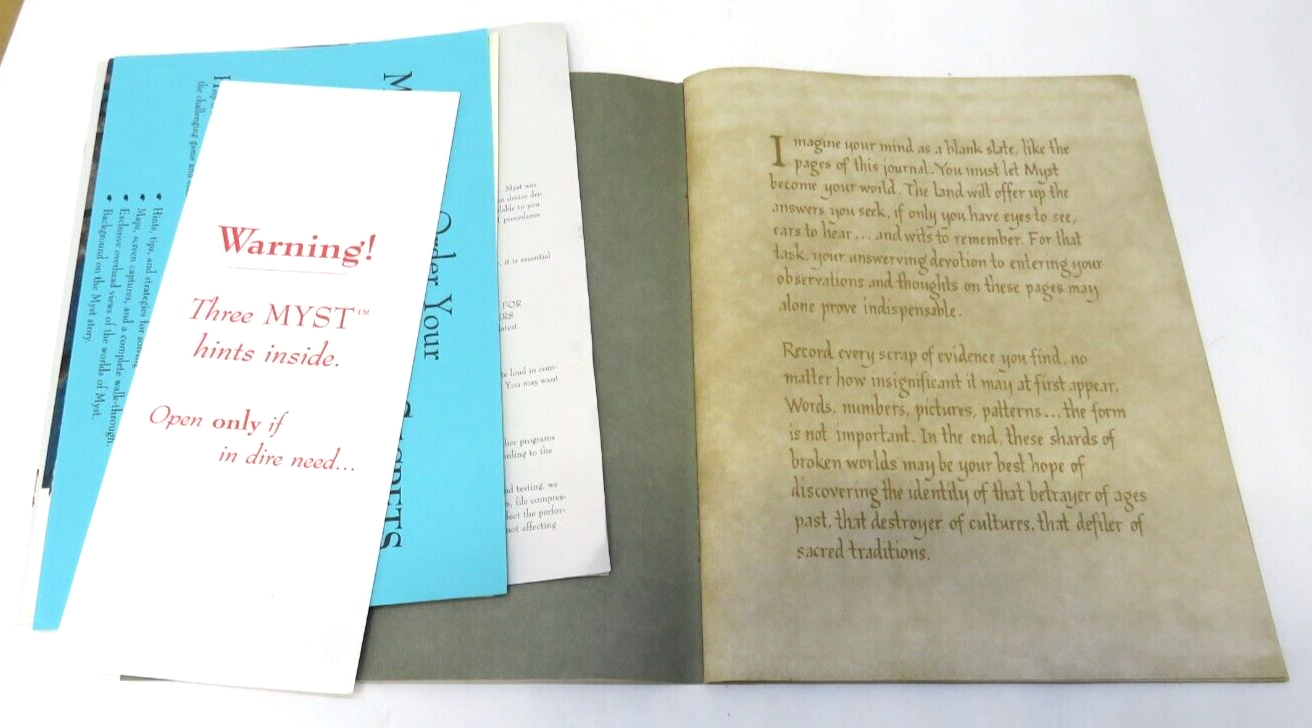 Warning!
Three MYST™
hints inside.
Open only if
in dire need...
Order Your
the challenging game and
Hints, tips, and strategies for solving
Maps, screen captures, and a complete walk-through.
Exclusive overhead views of the worlds of Myst.
Background on the Myst story.
Myst was
device dri-
lable to you
procedures
, it is essential
FOR
load in com-
You may want
her programs
rding to the
nd testing, we
s, file compres-
fect the perfor-
not affecting
Imagine your mind as a blank slate, like the
pages of this journal. You must let Myst
become your world. The land will offer up the
answers you seek, if only you have eyes to see,
ears to hear... and wits to remember. For that
task, your unswerving devotion to entering your
observations and thoughts on these pages may
alone prove indispensable.
Record every scrap of evidence you find, no
matter how insignificant it may at first appear.
Words, numbers, pictures, patterns... the form
is not important. In the end, these shards of
broken worlds may be your best hope of
discovering the identity of that betrayer of ages
past, that destroyer of cultures, that defiler of
sacred traditions.